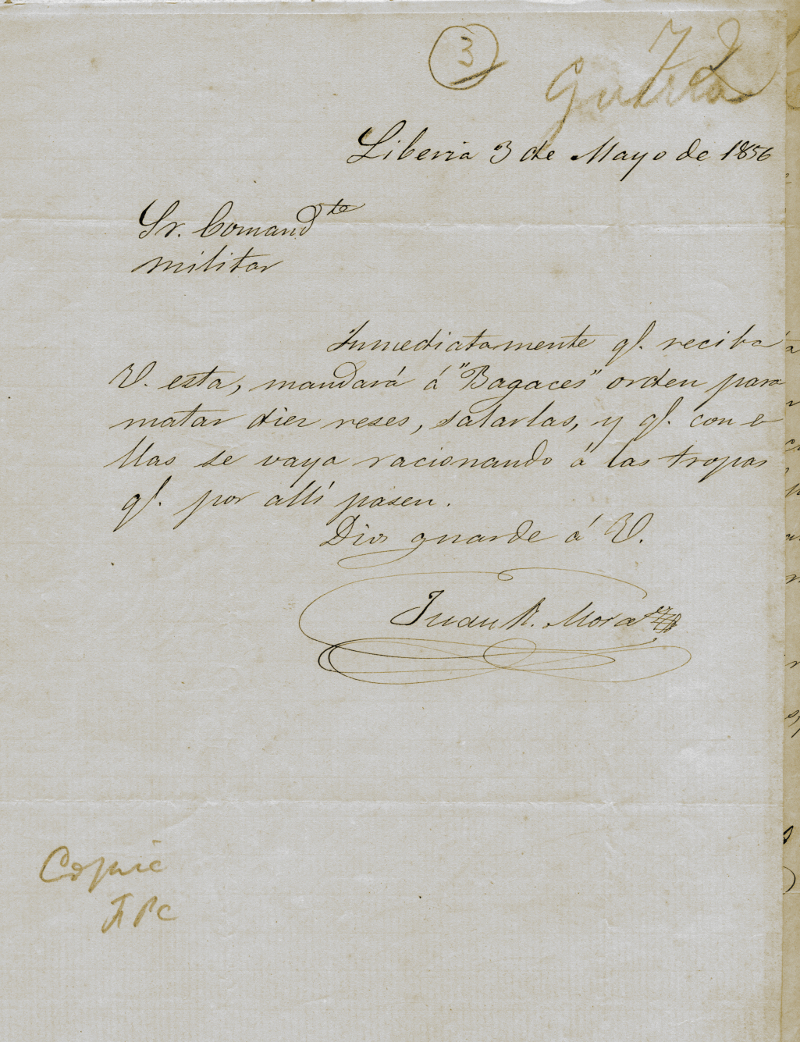 3
72
Guerra
Liberia 3 de Mayo de 1856
Sr. Comand.te
militar
Inmediatamente q. reciba
V. esta, mandará á "Bagaces" orden para
matar diez reses, salarlas, y q. con e
llas se vaya racionando á las tropas
q. por allí pasen.
Dios guarde á V.
Juan R. Mora
Copié